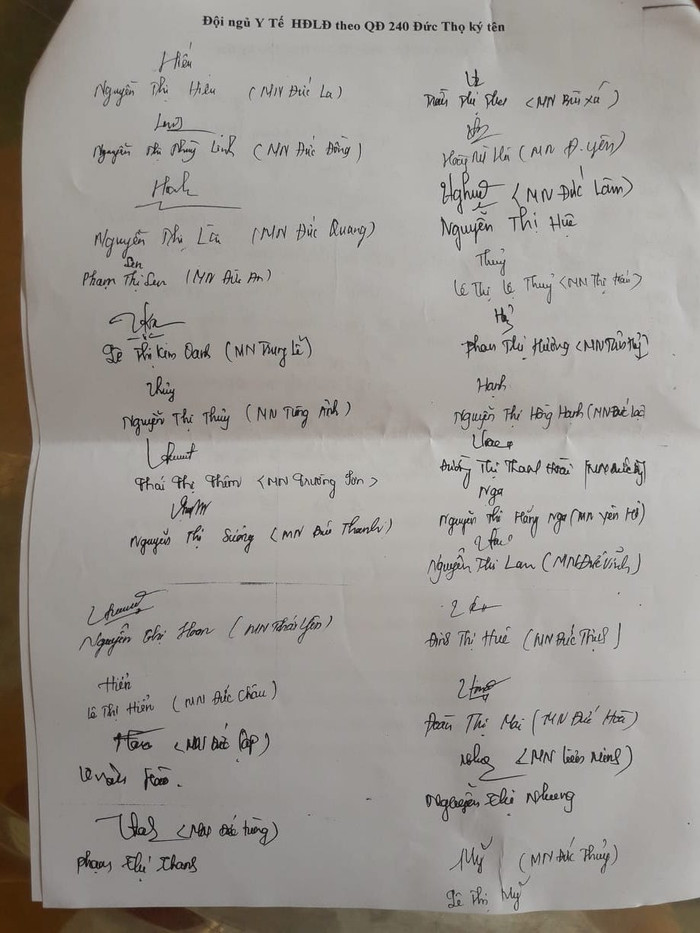 Đội ngũ Y Tế HĐLĐ theo QĐ 240 Đức Thọ ký tên
Hiếu
Nguyễn Thị Hiếu (MN Đức La)
Nguyễn Thị Phùng Linh (MN Đức Đồng)
Hanh
Nguyễn Thị (MN Đức Quang)
Sen
Phạm Thị Sen (MN Đức An)
Lê Thị Kim Oanh (MN Trung Lễ)
Thủy
Nguyễn Thị Thủy (MN Tùng Ảnh)
Thái Thị Thêm <MN Trường Sơn>
Nguyễn Thị Sương (MN Đức Thanh)
Nguyễn Thị Hoan (MN Thái Yên)
Hiền
Lê Thị Hiền (MN Đức Châu)
<MN Đức Lập)
<MN Đức Tùng)
Phạm Thị Thanh
Trần Thị (MN Bùi Xá)
(MN Đ. Yên)
<MN Đức Lâm)
Nguyễn Thị Huệ
Thuỷ
Lê Thị Lệ Thuỷ <MN Thị trấn)
Phan Thị Hương
Hạnh
Nguyễn Thị Hồng Hạnh (MN Đức Lạc)
Đường Thị Thanh Hoài
Nga
Nguyễn Thị Hằng Nga (MN Yên Hồ)
Nguyễn Thị Lan (MN Đức Vĩnh)
Đinh Thị Huê (MN Đức Thịnh)
Đoàn Thị Mai (MN Đức Hoà)
Nhung <MN Liên Minh)
Nguyễn Thị Nhung
Mỹ (MN Đức Thủy)
Lê Thị Mỹ